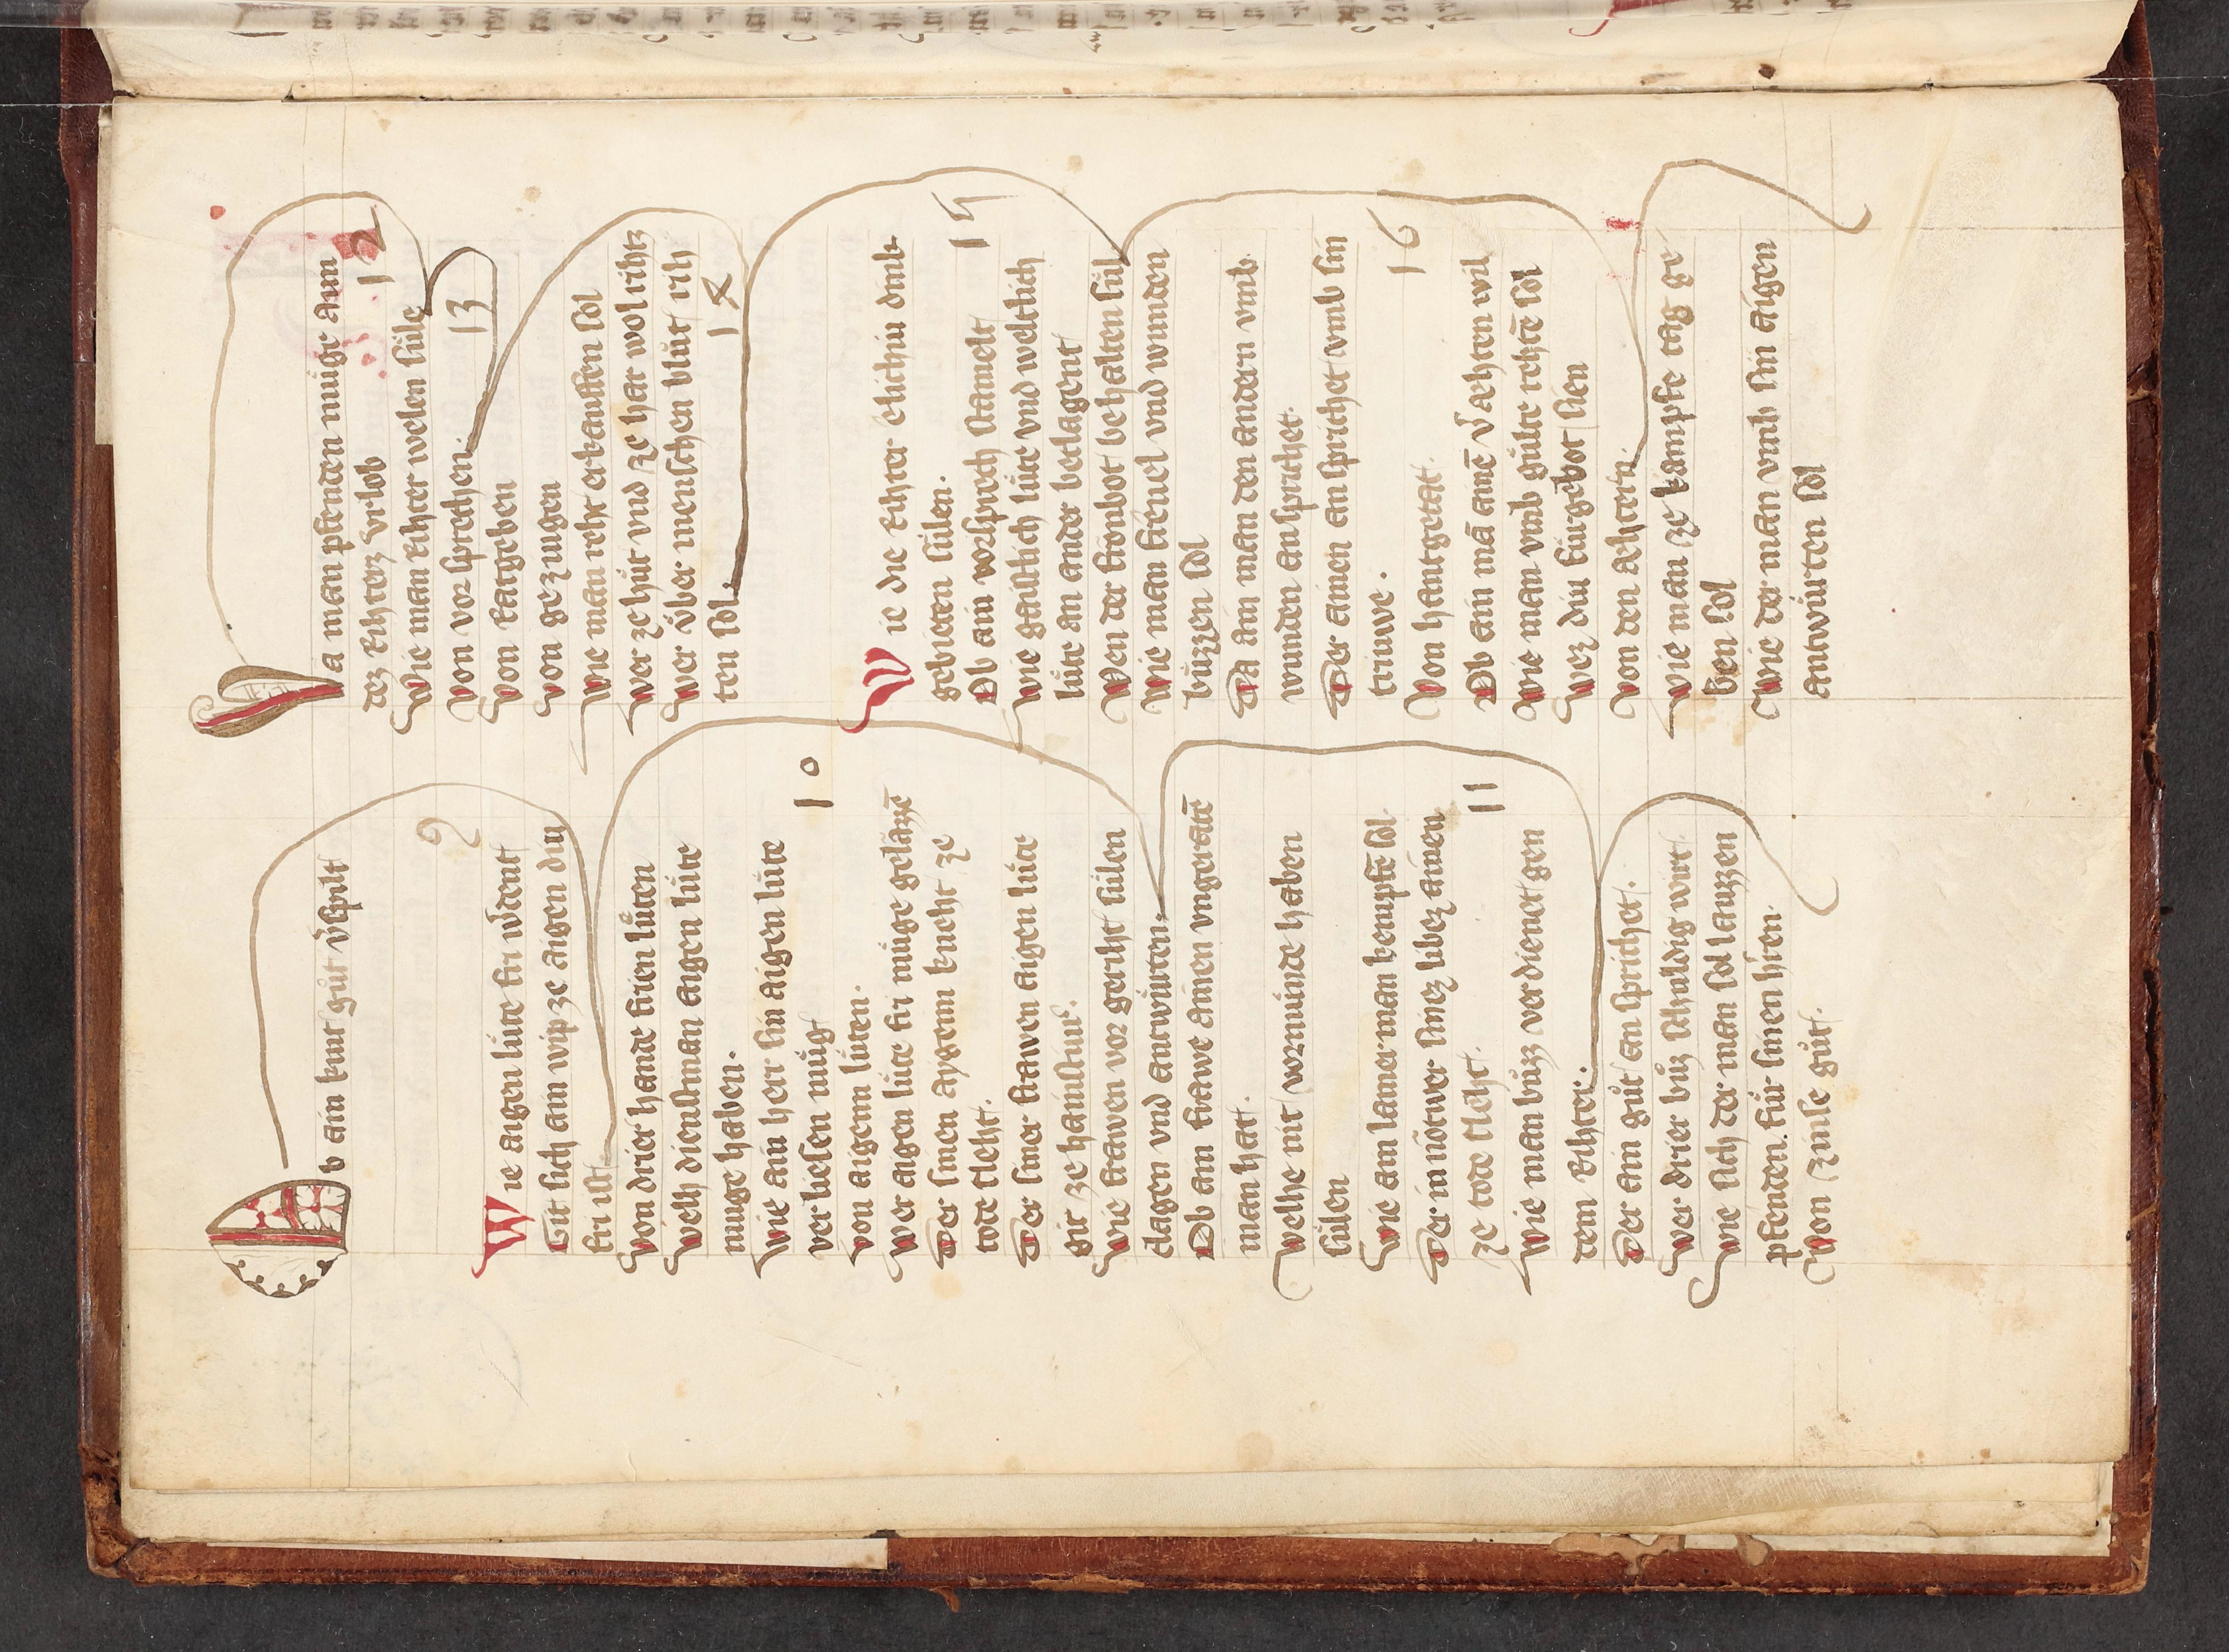 Ob ain kint gůt v̓spilt
9
Wie aigen lüte fri w̓dent
Git sich ain wip ze aigen diu
fri ist.
Von drier hande frien lüten
Welh dienstman aigen lüte
muge haben.
Wie ain herr sin aigen lüte 10
verliesen müg
von aigenn lüten.
Wer aigen lüte fri müge gelazzē
Der sinen aygenn kneht ze
tode sleht.
Der siner frawen aigen lüte
git ze hainstiur.
Wie frawen vor geriht sülen
clagen vnd antwürten.
Ob ain frawe ainen vngeratē
man hat.
Welhe nit vormünde haben
sülen
Wie ain lamer man kempfē sol
Der in nötwer sinez libez ainen
ze tode sleht. 11
Wie man bůzz verdienet gen
dem rihter.
Der ain gůt an sprichet.
Wer drier bůz schuldig wirt
Wie sich der man sol lauzzen
pfenden für sinen h̓ren.
Von zinse gůt.
Wa man pfenden müge ain
dez rihterz vrlob 12
Wie man rihter welen süle
Von vorsprechen. 13
Von ratgeben
Von geziugen
Wie man reht erkauffen sol
Wer ze hüt vnd ze har wol rihtz
Wer über menschen blůt rih
ten sol. 14
Wie die rihter elichiu dink
gebieten sülen.
Ob ain vorsprech stamelt 15
Wie gaistlich lüte vnd weltlich
lüte an ander beclagent
Wen der fronbot behalten sül
Wie man freuel vnd wunden
bůzzen sol
Da ain man den andern vmb
wunden ansprichet.
Der ainen ansprichet vmb sin
triuwe. 16
Von hantgetat.
Ob ain mā ainē v̓aehten wil
Wie man vmb gülte rehtē sol
Wez diu fürgebot sien
Von den aehtern.
Wie man ze kampfe tag ge
ben sol
Wie der man vmb sin aigen
antwürten sol